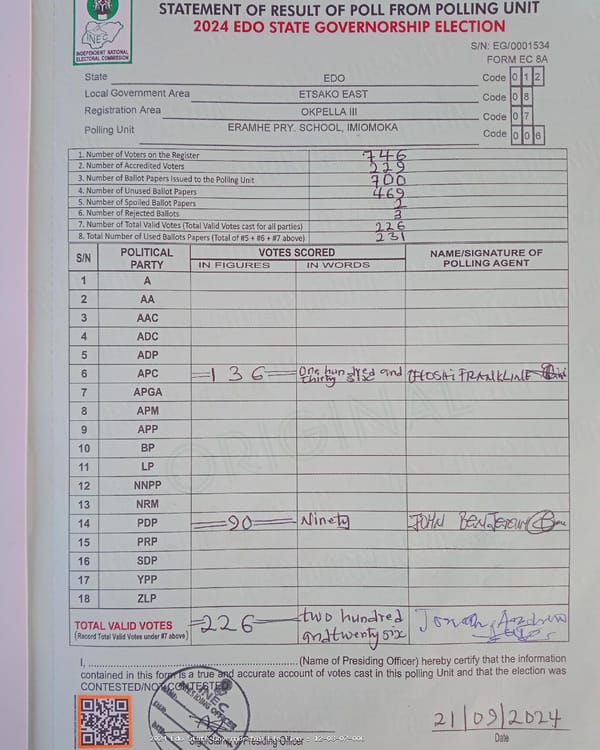 STATEMENT OF RESULT OF POLL FROM POLLING UNIT
2024 EDO STATE GOVERNORSHIP ELECTION
INEC
INDEPENDENT NATIONAL
ELECTORAL COMMISSION
S/N: EG/0001534
FORM EC 8A
State EDO Code 0 1 2
Local Government Area ETSAKO EAST Code 0 8
Registration Area OKPELLA III Code 0 7
Polling Unit ERAMHE PRY. SCHOOL, IMIOMOKA Code 0 0 6
1. Number of Voters on the Register 746
2. Number of Accredited Voters 229
3. Number of Ballot Papers Issued to the Polling Unit 700
4. Number of Unused Ballot Papers 469
5. Number of Spoiled Ballot Papers 2
6. Number of Rejected Ballots 3
7. Number of Total Valid Votes (Total Valid Votes cast for all parties) 226
8. Total Number of Used Ballots Papers (Total of #5 + #6 + #7 above) 231
S/N POLITICAL PARTY VOTES SCORED NAME/SIGNATURE OF POLLING AGENT
IN FIGURES IN WORDS
1 A
2 AA
3 AAC
4 ADC
5 ADP
6 APC =136= One hundred and thirty six FRANKLINE
7 APGA
8 APM
9 APP
10 BP
11 LP
12 NNPP
13 NRM
14 PDP =90= Ninety JOHN
15 PRP
16 SDP
17 YPP
18 ZLP
ORIGINAL
TOTAL VALID VOTES =226= two hundred and twenty six Jonah Andrew
(Record Total Valid Votes under #7 above)
I, ...(Name of Presiding Officer) hereby certify that the information
contained in this form is a true and accurate account of votes cast in this polling Unit and that the election was
CONTESTED/NOT CONTESTED
INEC
PRESIDING OFFICER
Sign/Stamp of Presiding Officer
21/09/2024
Date